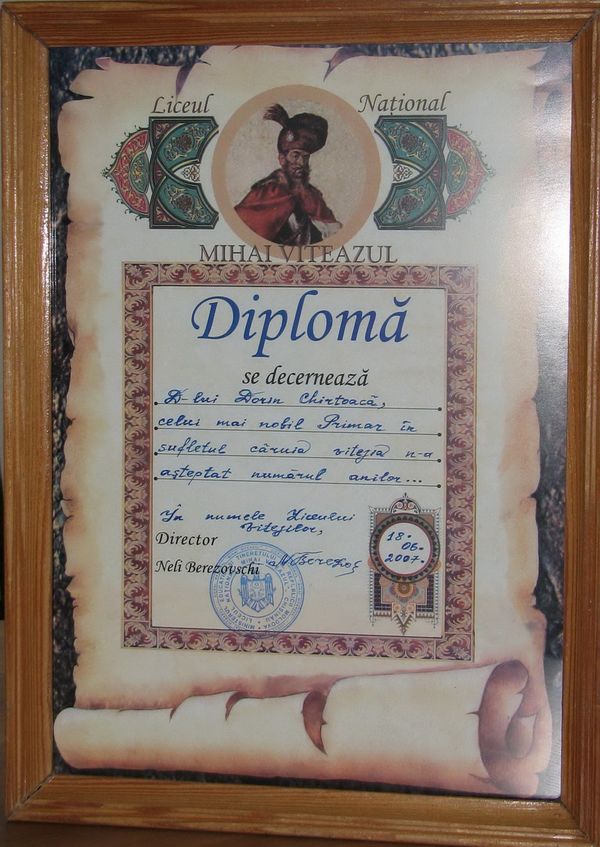 Liceul Național
MIHAI VITEAZUL
Diplomă
se decernează
D-lui Dorin Chirtoacă,
celui mai nobil Primar în
sufletul căruia vitejia n-a
așteptat numărul anilor...
În numele Liceului
Vitejilor,
Director
Neli Berezovschi
18.
06.
2007.